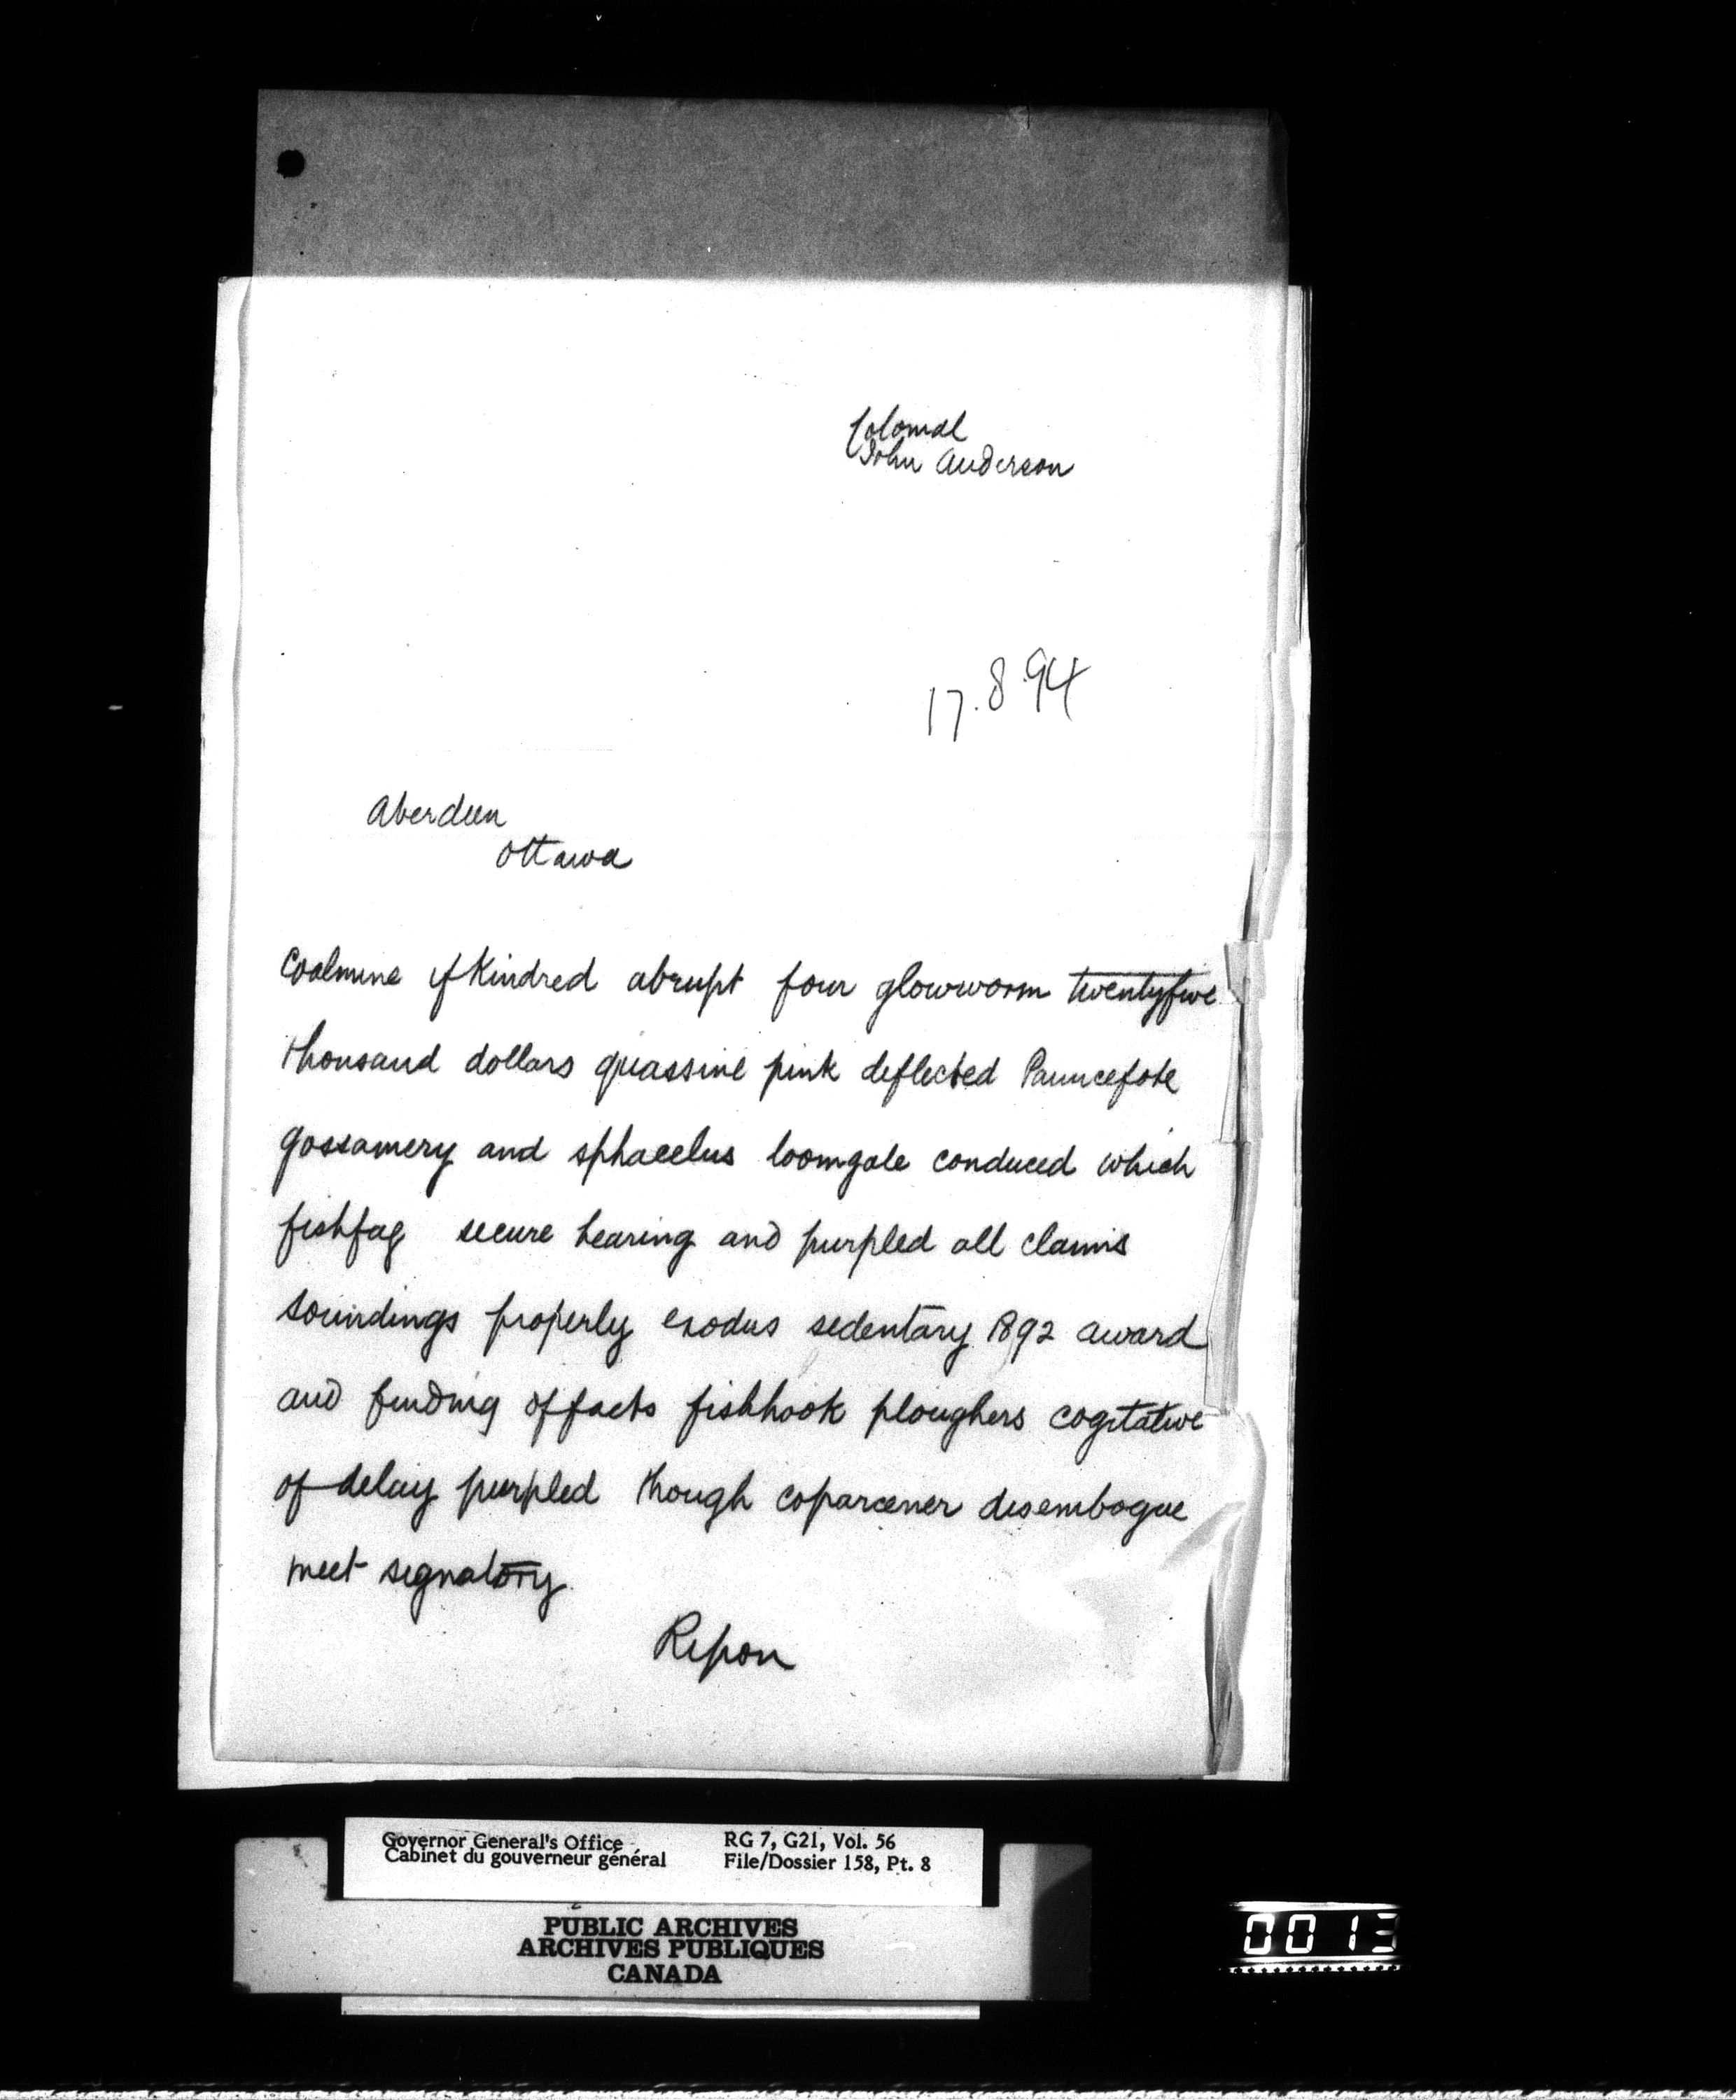 Colonial
John Anderson
17.8.94
Aberdeen
Ottawa
Coalmine if Kindred abrupt four glowworm twentyfive
thousand dollars quassine pink deflected Pauncefote
gossamery and sphacelus loomgale conduced which
fishfag secure hearing and purpled all claims
soundings properly exodus sedentary 1892 award
and finding of facts fishhook ploughers cogitative
of delay purpled though coparcener disembogue
meet signatory.
Ripon
Governor General's Office RG 7, G21, Vol. 56
Cabinet du gouverneur général File/Dossier 158, Pt. 8
PUBLIC ARCHIVES
ARCHIVES PUBLIQUES
CANADA
0013